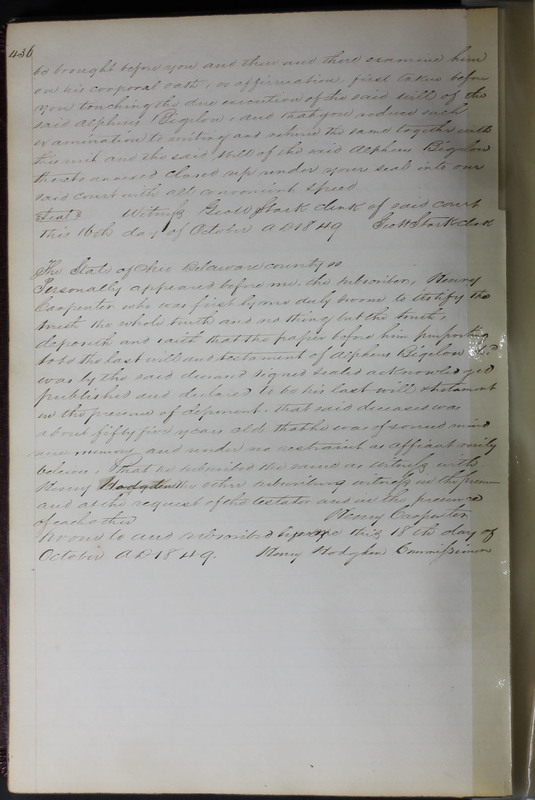 436
be brought before you and then and there examine him
on his corporal oath, or affirmation, first taken before
you touching the due execution of the said will of the
said Alpheus Bigelow, and that you reduce such
examination to writing and return the same together with
this writ and the said Will of the said Alpheus Bigelow
thereto annexed closed up under your seal into our
said court with all convenient speed
Seal Witness Geo W Stark clerk of said court
this 16th day of October AD 1849 Geo W Stark clerk
The State of Ohio Delaware county ss
Personally appeared before me the subscriber, Henry
Carpenter who was first by me duly sworne to testify the
truth the whole truth and nothing but the truth,
deposeth and saith that the paper before him purporting
to be the last will and testament of Alpheus Bigelow
was by the said deceased signed sealed acknowledged
published and declared to be his last will & testament
in the presence of deponent. that said deceased was
about fifty five years old that he was of sound mind
and memory and under no restraint as affiant verily
believes. That he subscribed the same as witness with
Henry Hodgden the other subscribing witness in the presence
and at the request of the testator and in the presence
of each other Henry Carpenter
Sworne to and subscribed before me this 18th day of
October AD 1849. Henry Hodgden Commissioner